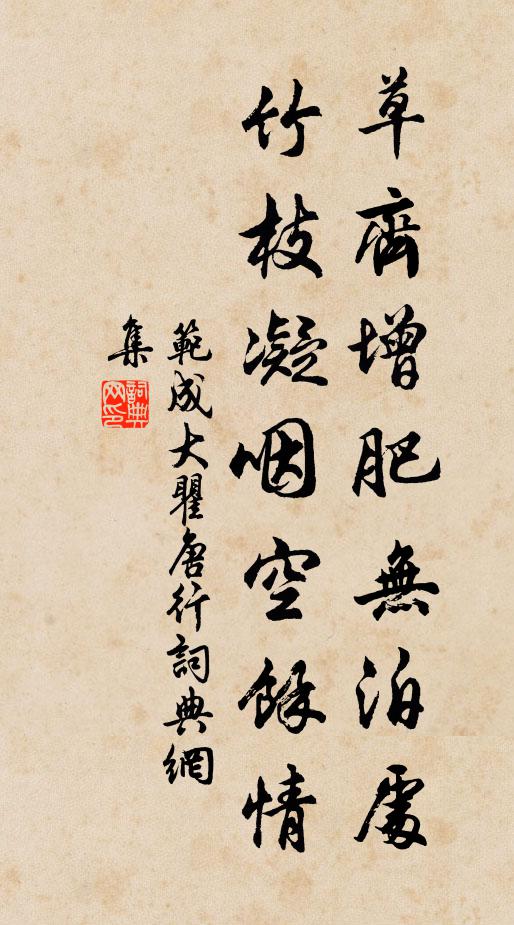 草齊增肥無泊處
竹枝凝咽空餘情
範成大瞿唐行詞典網
集
詞典網印